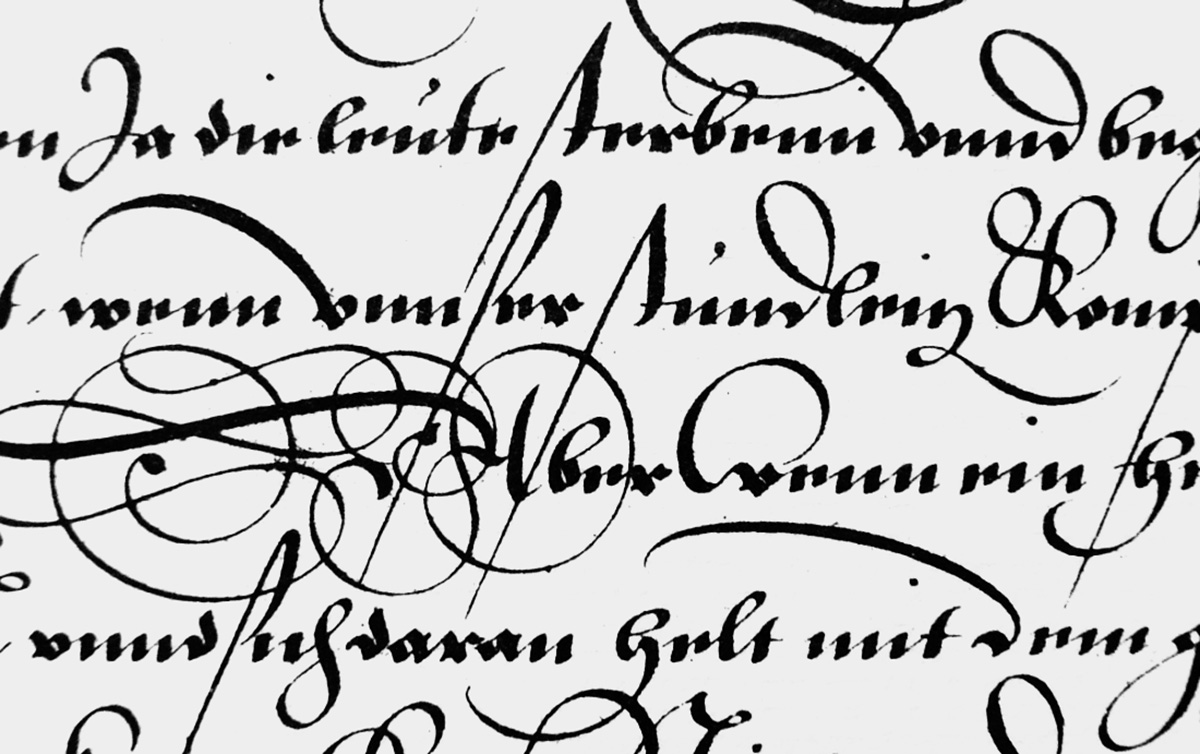 en Ja die leutte sterbenn vnnd beg
t, wenn vnnser stundlein Kom
Aber wenn ein he
vnnd sich daran helt mit dem g